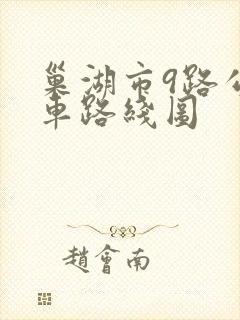 巢湖市9路公
車路綫圖
趙會南